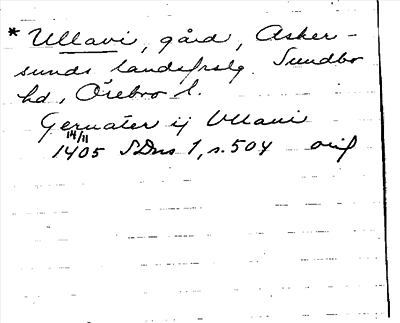 * Ullavi, gård, Asker-
sunds landsfrslg. Sundbo
hd, Örebro l.
Geruater ij Vllaui
14/11
1405 SDns 1, s. 504 orig